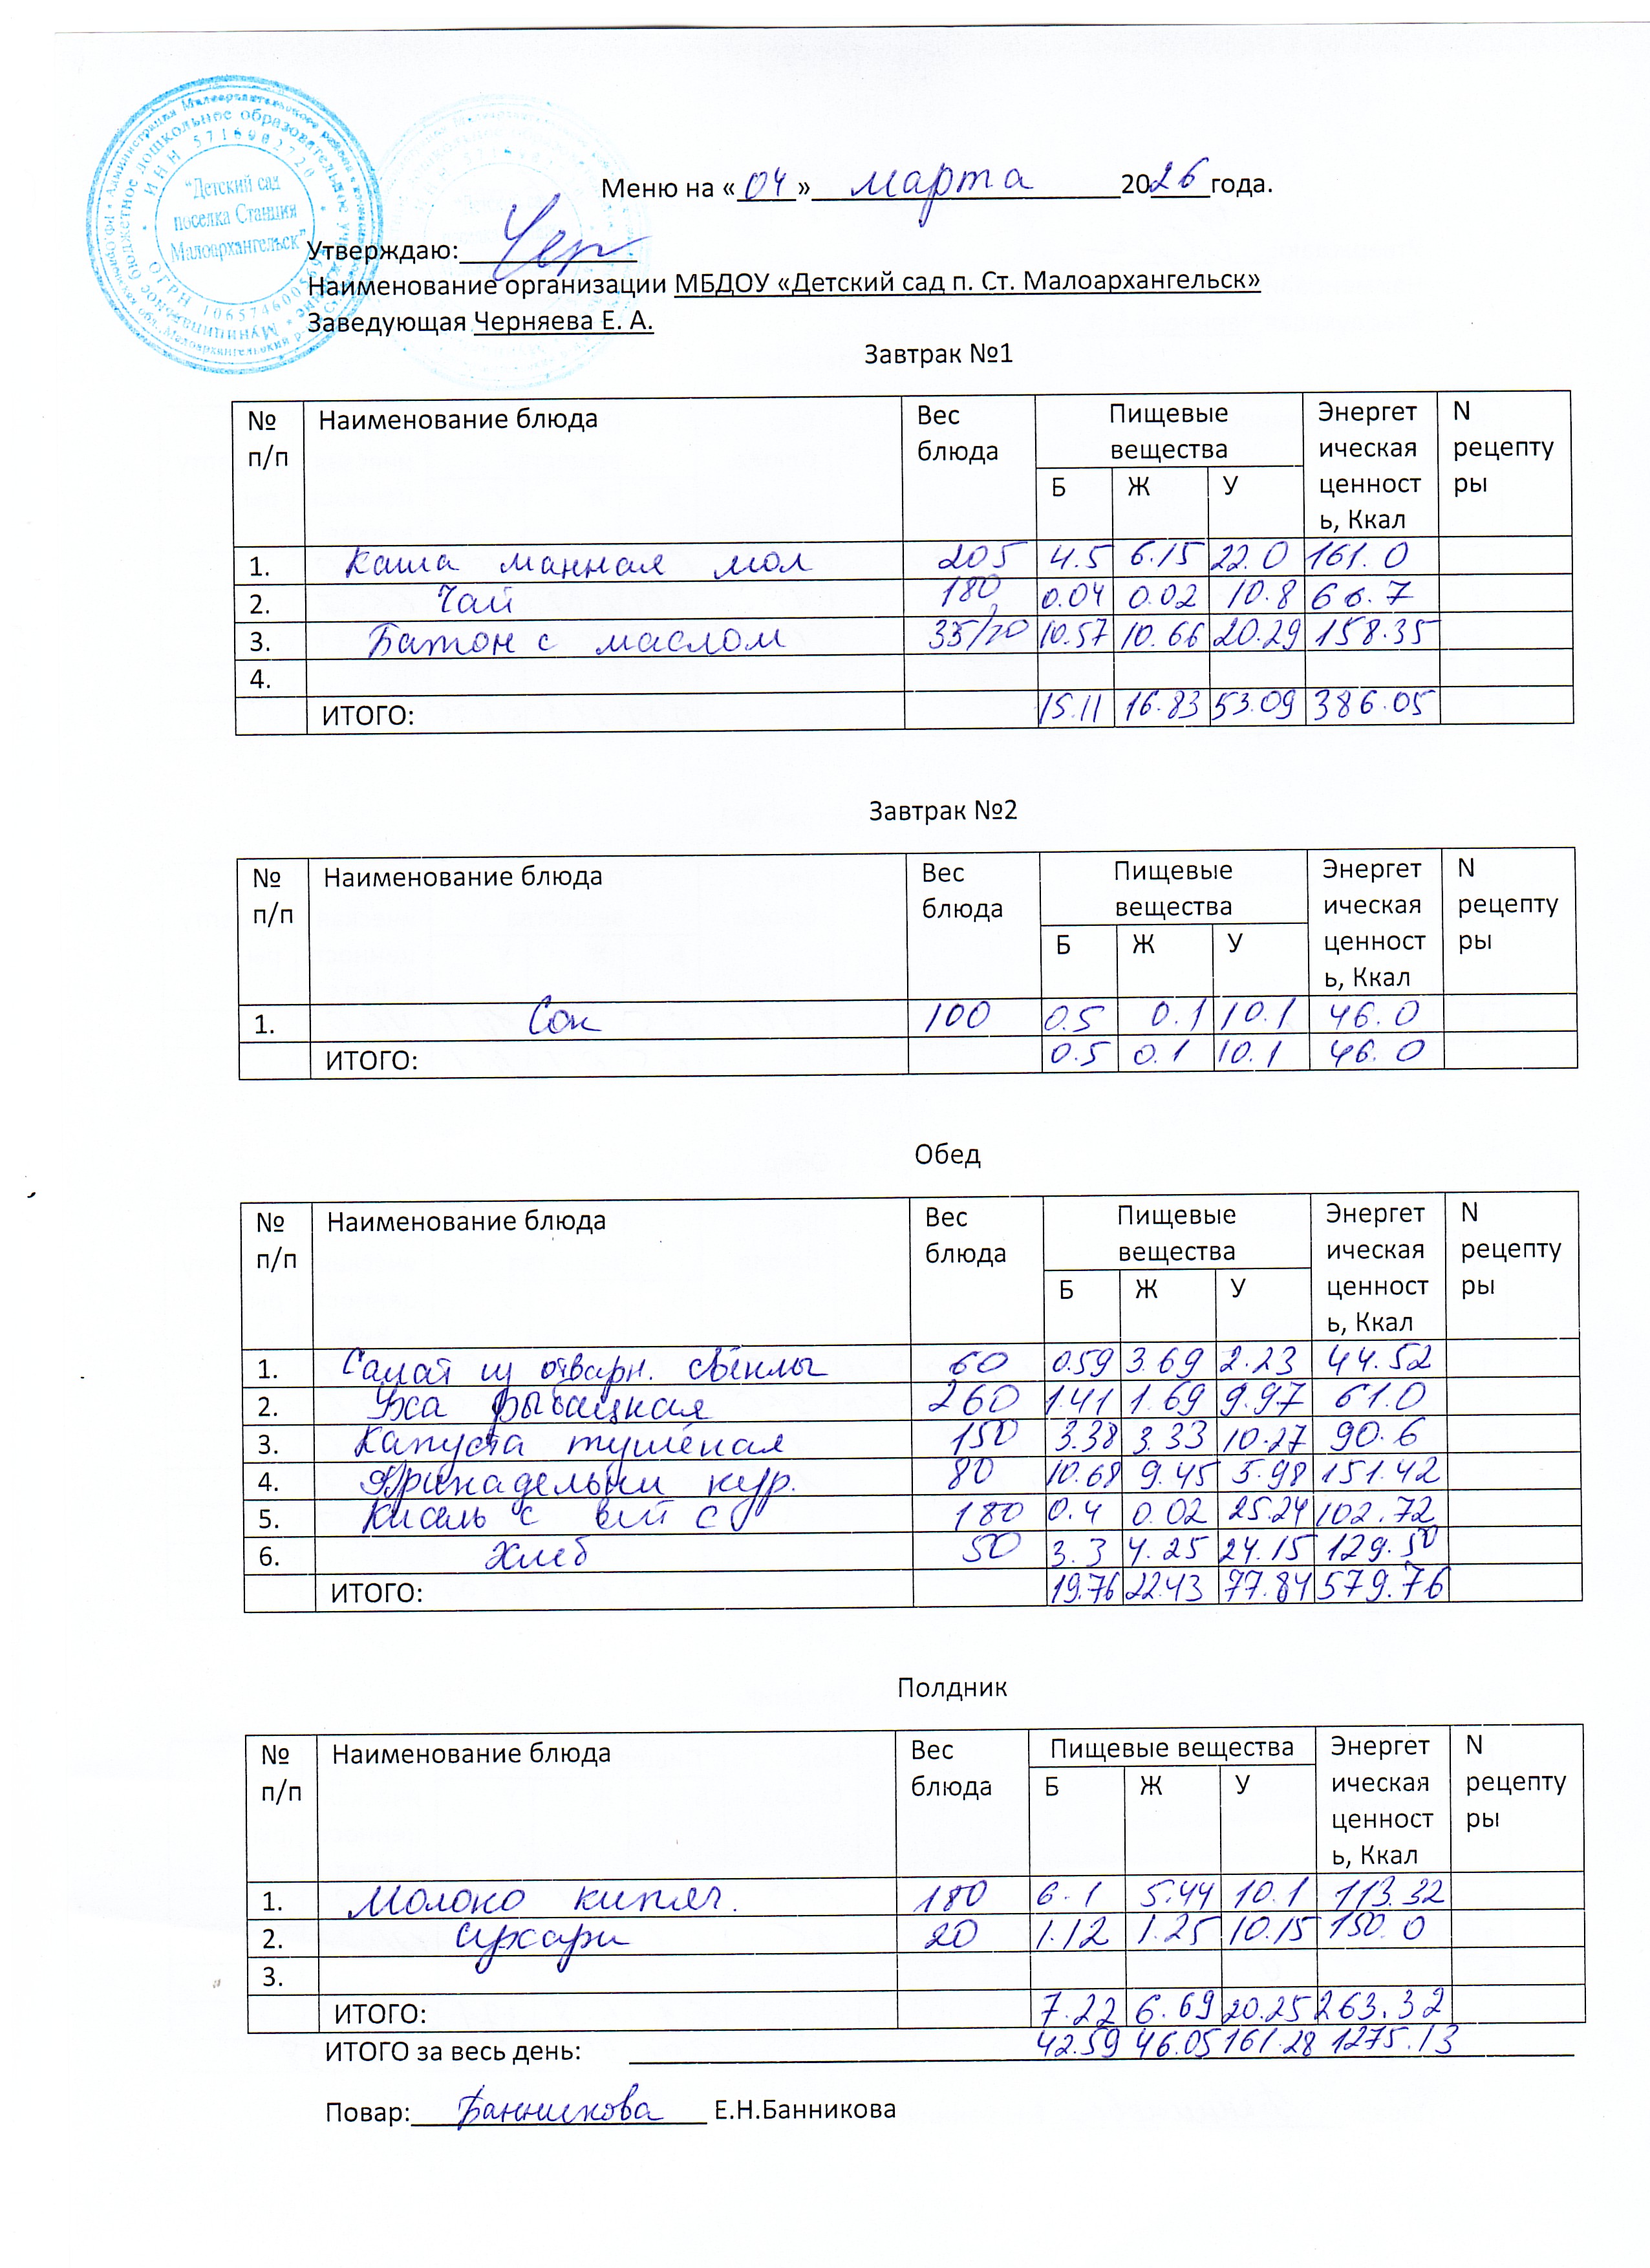 "Детский сад
поселка Станция
Малоархангельск"
Меню на «04» марта 2026 года.
Утверждаю: Чер
Наименование организации МБДОУ «Детский сад п. Ст. Малоархангельск»
Заведующая Черняева Е. А.
Завтрак №1
№ п/п Наименование блюда Вес блюда Пищевые вещества Энергетическая ценность, Ккал N рецептуры
Б Ж У
1. Каша манная мол 205 4.5 6.15 22.0 161.0
2. Чай 180 0.04 0.02 10.8 66.7
3. Батон с маслом 35/10 10.57 10.66 20.29 158.35
4.
ИТОГО: 15.11 16.83 53.09 386.05
Завтрак №2
№ п/п Наименование блюда Вес блюда Пищевые вещества Энергетическая ценность, Ккал N рецептуры
Б Ж У
1. Сок 100 0.5 0.1 10.1 46.0
ИТОГО: 0.5 0.1 10.1 46.0
Обед
№ п/п Наименование блюда Вес блюда Пищевые вещества Энергетическая ценность, Ккал N рецептуры
Б Ж У
1. Салат из отварн. свёклы 60 0.59 3.69 2.23 44.52
2. Уха рыбацкая 260 1.41 1.69 9.97 61.0
3. Капуста тушёная 150 3.38 3.33 10.27 90.6
4. Фрикадельки кур. 80 10.68 9.45 5.98 151.42
5. Кисель с вит С 180 0.4 0.02 25.24 102.72
6. Хлеб 50 3.3 4.25 24.15 129.50
ИТОГО: 19.76 22.43 77.84 579.76
Полдник
№ п/п Наименование блюда Вес блюда Пищевые вещества Энергетическая ценность, Ккал N рецептуры
Б Ж У
1. Молоко кипяч. 180 6.1 5.44 10.1 113.32
2. Сухари 20 1.12 1.25 10.15 150.0
3.
ИТОГО: 7.22 6.69 20.25 263.32
ИТОГО за весь день: 42.59 46.05 161.28 1275.13
Повар: Банникова Е.Н.Банникова